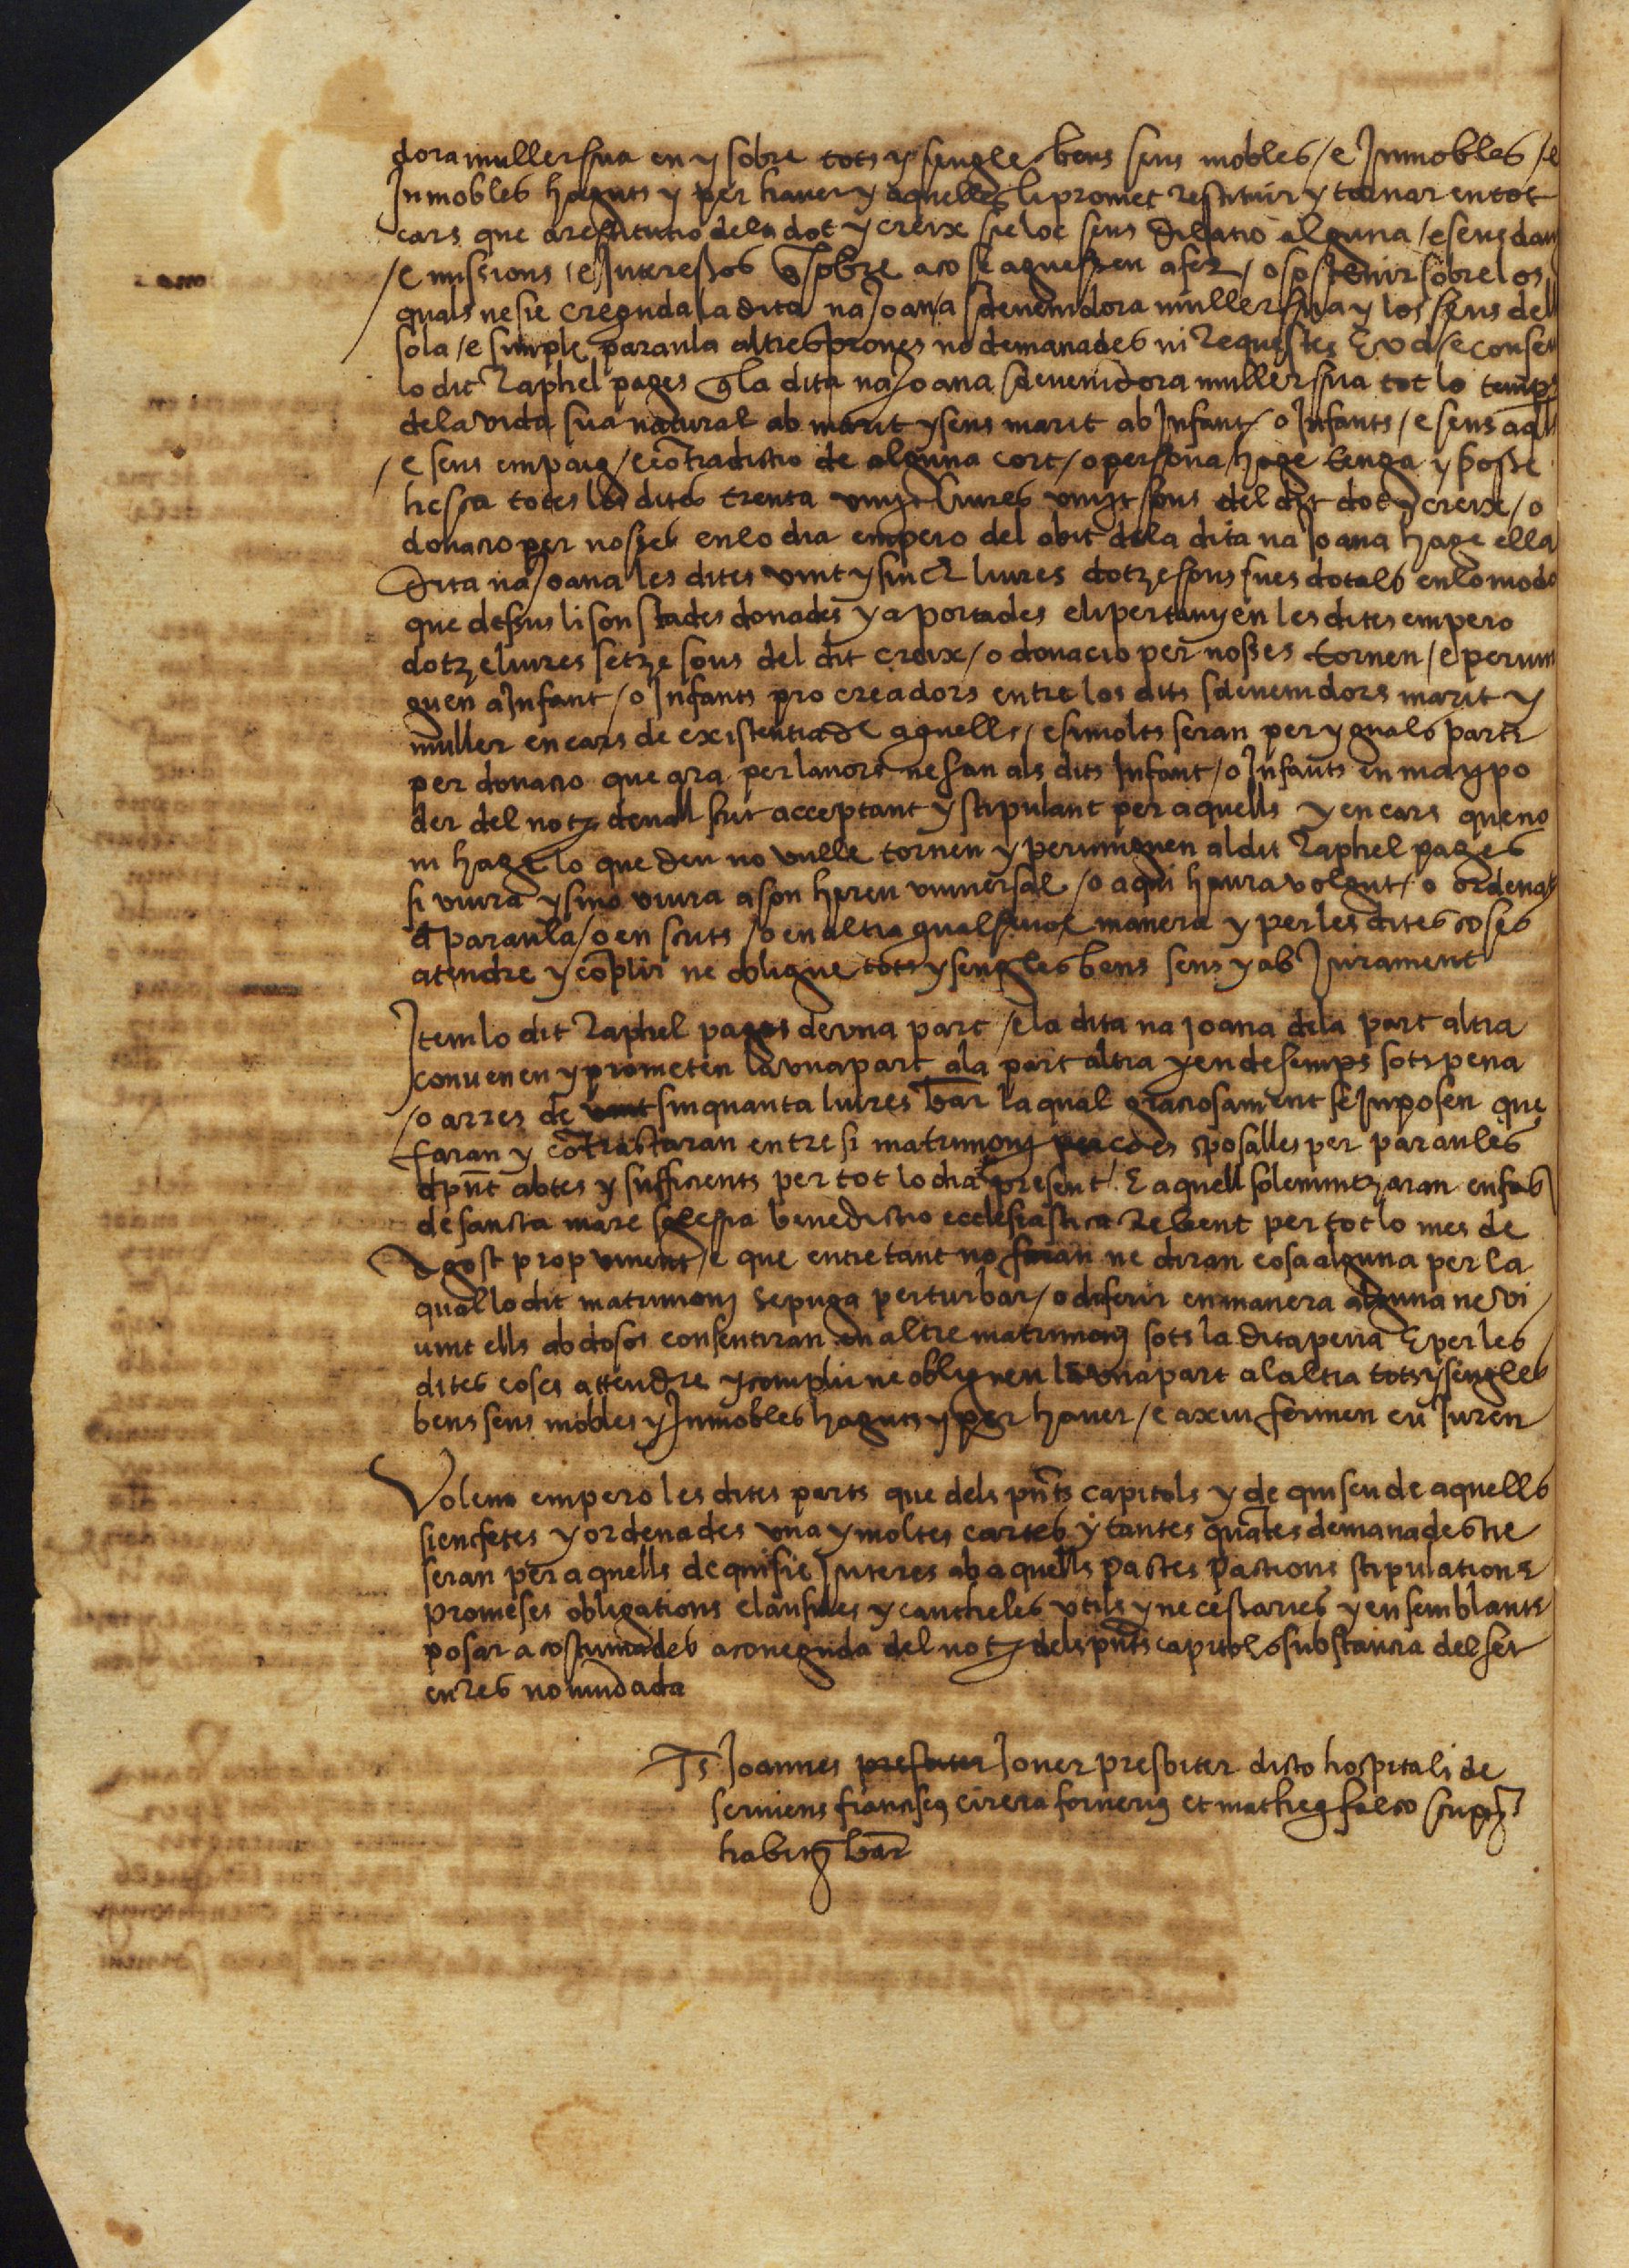 dora muller sua en y sobre tots y sengles bens seus mobles / e Inmobles / e
Inmobles haguts y per haver y aquelles li promet restituir y tornar en tot
cars que a restitutio dela dot y creix sie loc sens dilatio alguna / e sens dan
/ e missions / e Interessos q sobre aço se aguessen afer / o sostenir sobre los
quals ne sie creguda la dita na Joana sdevenidora muller sua y los seus de
sola / e simple paraula altres proves no demanades ni requestes E vol / e consen
lo dit Raphel pages q la dita na Joana sdevenidora muller sua tot lo temps
dela vida sua natural ab marit y sens marit ab Infant / o Infants / e sens aqlls
/ e sens empaig / e cotradictio de alguna cort / o persona hage tenga y posse
hesca totes les dites trenta vuyt liures vuyt sous del dit dot y creix / o
donacio per nosses en lo dia empero del obit dela dita na Joana hage ella
dita na Joana les dites vint y sinch liures dotze sous sues dotals en lo modo
que dessus li son stades donades y aportades e li pertanyen les dites empero
dotze liures setze sous del dit creix / o donacio per nosses tornen / e pervin
guen a Infant / o Infants procreadors entre los dits sdevenidors marit y
muller en cars de existentia de aquells / e si molts seran per yguals parts
per donacio que ara per lavors ne fan als dits Infant / o Infants en ma y po
der del not devall scrit acceptant y stipulant per aquells y en cars que no
ni hage lo que deu no vulle tornen y pervinguen al dit Raphel pages
si viura y sino viura a son hereu universal / o a qui haura volgut / o ordenat
d paraula / o en scrits / o en altra qualsevol manera y per les dites coses
atendre y coplir ne obligue tots y sengles bens seus y ab Jurament
Item lo dit Raphel pages de una part / e la dita na Joana dela part altra
convenen y prometen la una part ala part altra y endesemps sots pena
/ o arres de vint sinquanta liures bar la qual graciosament se Inposen que
faran y cotractaran entre si matrimonj sposalles per paraules
d pnt abtes y sufficients per tot lo dia present / E aquell solemnitzaran en fas
de sancta mare sglesia benedictio ecclesiastica rebent per tot lo mes de
Agost prop vinent / e que entretant no faran ne diran cosa alguna per la
qual lo dit matrimonj se puga perturbar / o diferir en manera alguna ne vi
vint ells abdosos consentiran en altre matrimonj sots la dita pena E per les
dites coses attendre y complir ne obliguen la una part alaltra tots y sengles
bens seus mobles y Inmobles haguts y per haver / e axiu fermen eu Juren
Volen empero les dites parts que dels pnts capitols y de quiscu de aquells
sien fetes y ordenades una y moltes cartes y tantes quates demanades ne
seran per aquells de qui sie Interes ab aquells pactes pactions stipulations
promeses obligations clausules y cautheles utils y necessaries y en semblants
posar acostumades a coneguda del not dels pnts capitols substancia del fet
en res no mudada
Ts Joannes presbiter Jover presbiter dicto hospitali de
serviens franciscq cirera fornerq et matheq falco scriptor
habitq bar